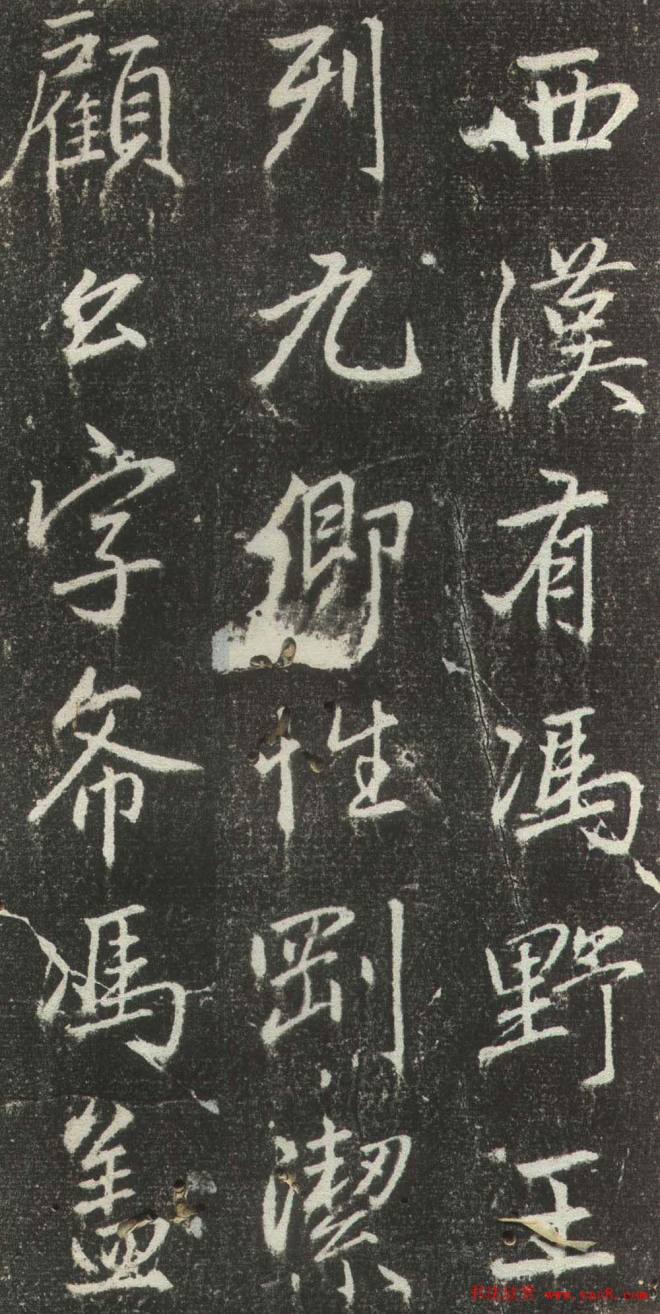 西漢有馮野王
列九卿性剛潔
顧公字希馮蓋
书法欣赏 www.yac8.com